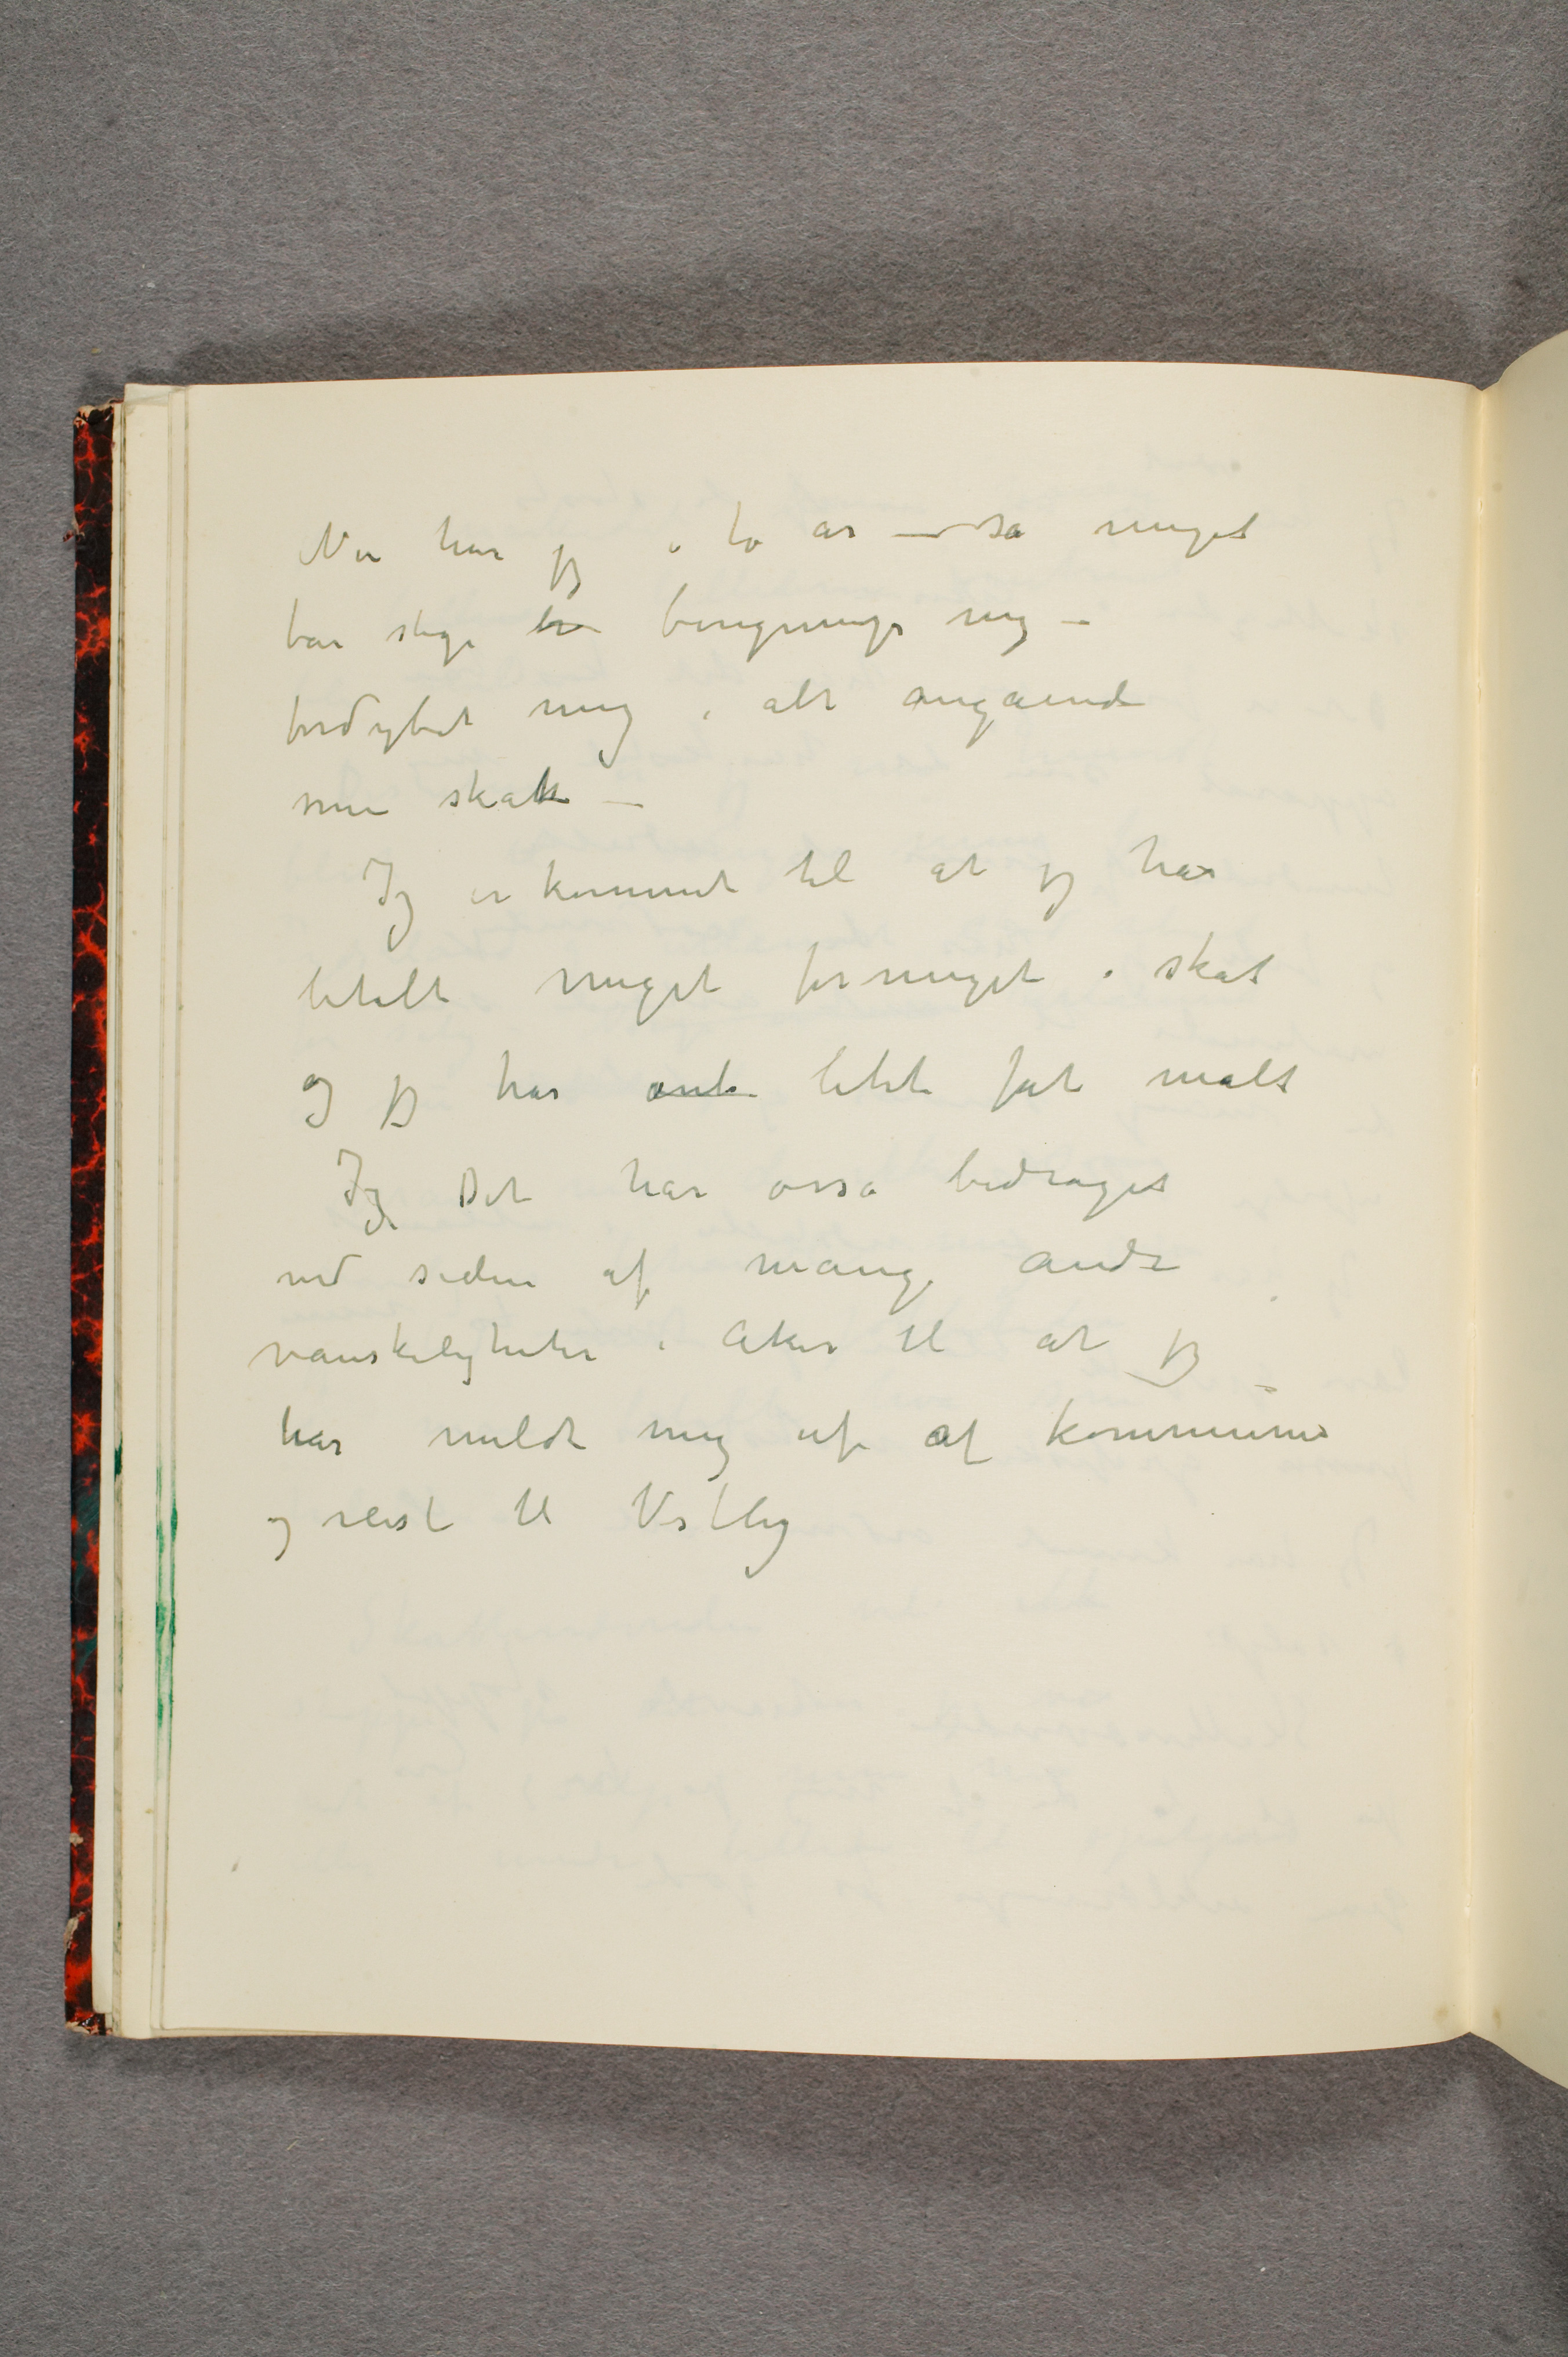 Nu har jeg i to år – så meget
bare stige –
fordybet meg i alt angående
min skat –
Jeg er kommet til at jeg har
betalt meget for meget i skat
og jeg har litet fåt malt
Jeg Det har osså bedraget
ved siden af mange andre
vanskeligheter i Aker til at jeg
har meldt meg ut af kommunen
og reist til Vestby